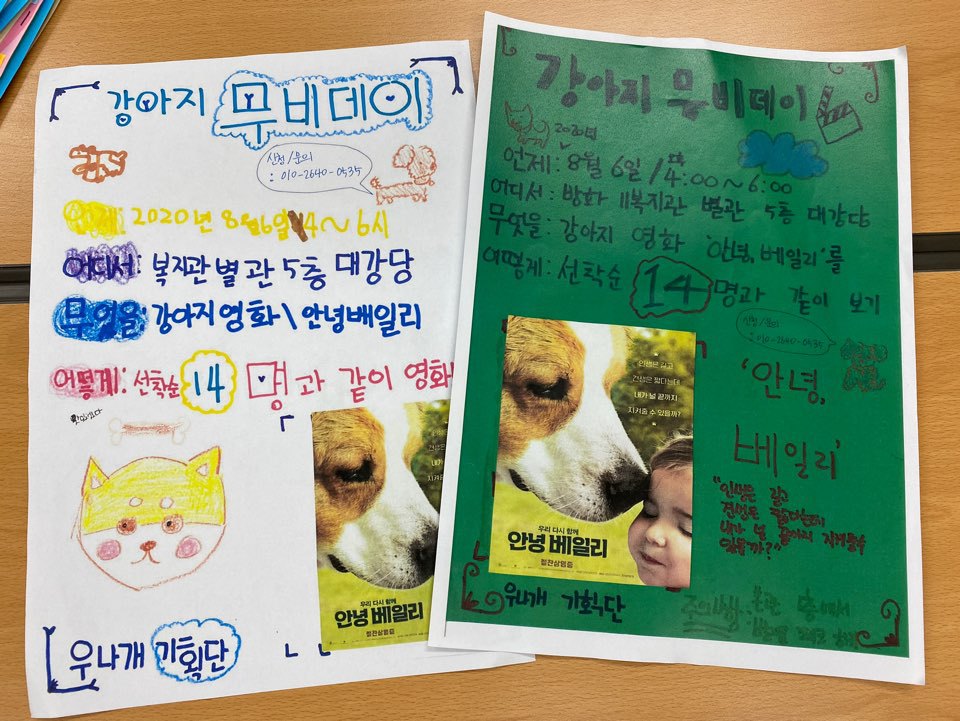 강아지 무비데이
신청/문의
: 010-2640-0535
언제: 2020년 8월 6일 4~6시
어디서: 복지관 별관 5층 대강당
무엇을: 강아지영화 \ 안녕베일리
어떻게: 선착순 14명과 같이 영화
우리 다시 함께
안녕 베일리
절찬상영중
우나개 기획단
강아지 무비데이
2020년
언제: 8월 6일 / 4:00~6:00
어디서: 방화 11복지관 별관 5층 대강당
무엇을: 강아지 영화 '안녕, 베일리'를
어떻게: 선착순 14명과 같이 보기
신청/문의
: 010-2640-0535
인생은 길고
견생은 짧다는데
내가 널 끝까지
지켜줄 수 있을까?
우리 다시 함께
안녕 베일리
절찬상영중
'안녕,
베일리'
"인생은 길고
견생은 짧다는데
내가 널 끝까지 지켜줄수
있을까?"
우나개 기획단
주의사항